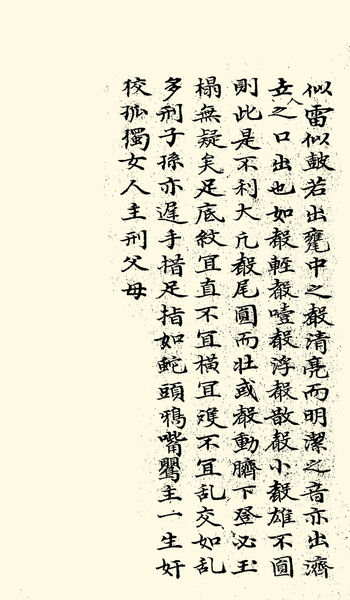 似雷似鼓若出甕中之聲清亮而明潔之音亦出濟
五人之口出也如聲輕聲噎聲浮聲散聲小聲雄不圓
則此是不利大凢聲尾圓而壮或聲動臍下登必玉
榻無疑矣足底紋宜直不宜橫宜雙不宜乱交如乱
多刑子孫亦遲手措足指如蛇頭鴉嘴鸎主一生奸
狡孤獨女人主刑父母